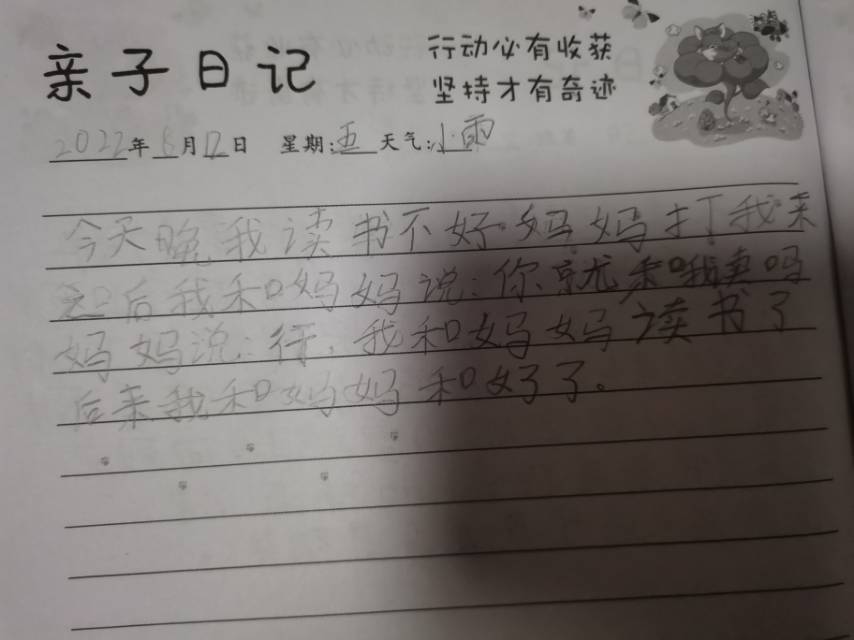 亲子日记
行动必有收获
坚持才有奇迹
2022年8月12日 星期:五 天气:小雨
今天晚我读书不好妈妈打我来
之后我和妈妈说:你就和我卖吗
妈妈说:行,我和妈妈读书了
后来我和妈妈和好了。